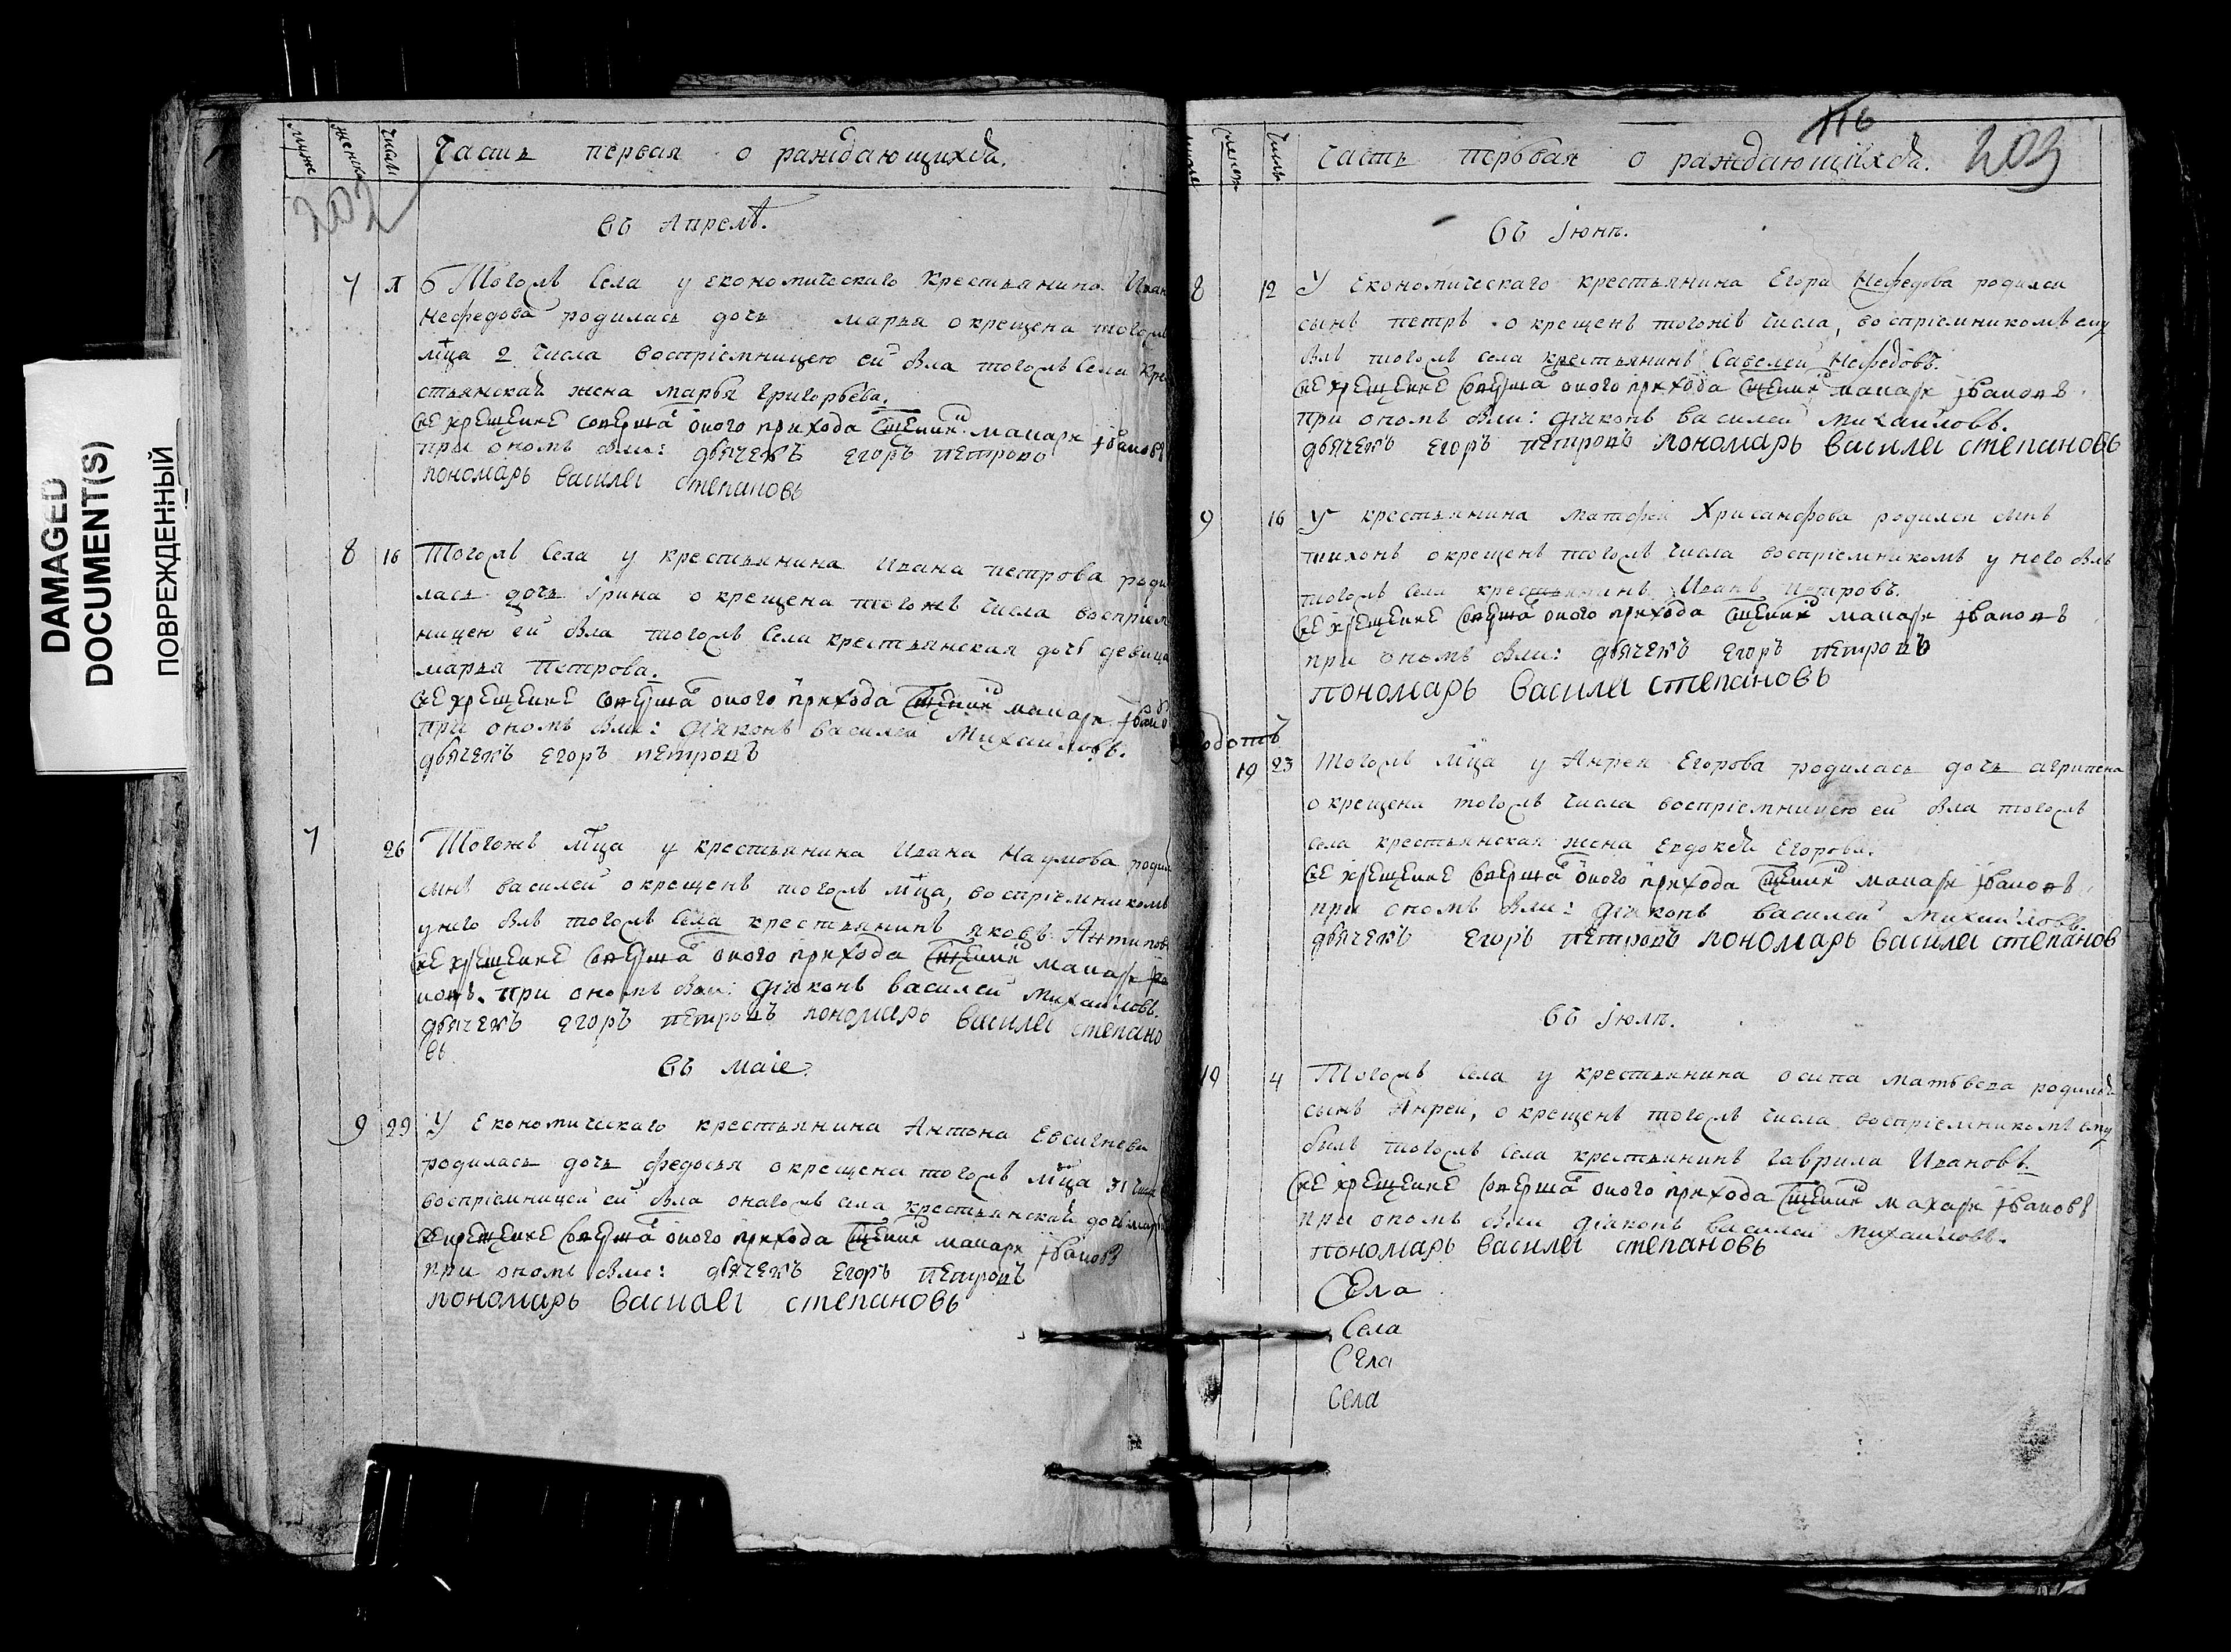 DAMAGED
DOCUMENT(S)
ПОВРЕЖДЕННЫЙ
муже
женск
числ
Часть первая о раждающихся.
202
въ Апрелѣ.
7 Тогожъ села у економическаго крестьянина Иван
Нефедова родилась дочь марья окрещена тогожъ
мца 2 числа воспріемницею ей бла тогожъ села кре
стьянская жена марья григорьева.
сие крещение соверша оного прихода сщенник макари ивановъ
при ономъ бли: дьячекъ егоръ петровъ
пономарь василеи степановь
8 16 Тогожъ села у крестьянина ивана петрова роди
лась дочь ірина окрещена тогожъ числа воспріем
ницею ей бла тогожъ села крестьянская дочь девица
марья петрова.
сие крещение соверша оного прихода сщенник макари ивано
при ономъ бли: діаконъ василей михайловъ.
дьячекъ егоръ петровъ
7 26 Тогожъ мца у крестьянина ивана Наумова родил
сынъ василей окрещенъ тогожъ мца, воспріемникомъ
у него блъ тогожъ села крестьянинъ яковъ Антипов
сие крещение соверша оного прихода сщенник макари ива
новъ. при ономъ бли: діаконъ василей михайловъ.
дьячекъ егоръ петровъ пономарь василеи степано
вь
въ маіе.
9 29 У економическаго крестьянина Антона Евсигнеева
родилась дочь федосья окрещена тогожъ мца 31 числ
воспріемницей ей бла онагожъ села крестьянская дочь
сие крещение соверша оного прихода сщенник макари ивановъ
при ономъ бли: дьячекъ егоръ петровъ
пономарь василеи степановь
116
числ
Часть первая о раждающихся. 203
въ іюнѣ.
8 12 У економическаго крестьянина Егора Нефедова родился
сынъ петръ окрещенъ тогожъ числа, воспріемникомъ ему
блъ тогожъ села крестьянинъ Савелей Нефедовъ.
сие крещение соверша оного прихода сщенник макари ивановъ.
при ономъ бли: діаконъ василей михайловъ.
дьячекъ егоръ петровъ пономарь василеи степановь
9 16 У крестьянина матфея Хрисанфова родился сынъ
тихонъ окрещенъ тогожъ числа воспріемникомъ у него блъ
тогожъ села крестьянинъ Иванъ петровъ.
сие крещение соверша оного прихода сщенник макари ивановъ
при ономъ бли: дьячекъ егоръ петровъ
пономарь василеи степановь
10 23 Тогожъ мца у Анрея Егорова родилась дочь агрипена
окрещена тогожъ числа воспріемницею ей бла тогожъ
села крестьянская жена Евдокея Егорова.
сие крещение соверша оного прихода сщенник макари ивановъ.
при ономъ бли: діаконъ василей михайловъ.
дьячекъ егоръ петровъ пономарь василеи степанов
въ іюлѣ.
10 4 Тогожъ села у крестьянина осипа матвѣева родился
сынъ Анрей, окрещенъ тогожъ числа воспріемникомъ ему
билъ тогожъ села крестьянинъ гаврила Ивановъ.
сие крещение соверша оного прихода сщенник макари ивановъ
при ономъ бли діаконъ василей михайловъ.
пономарь василеи степановь
Села
Села
Села
Села